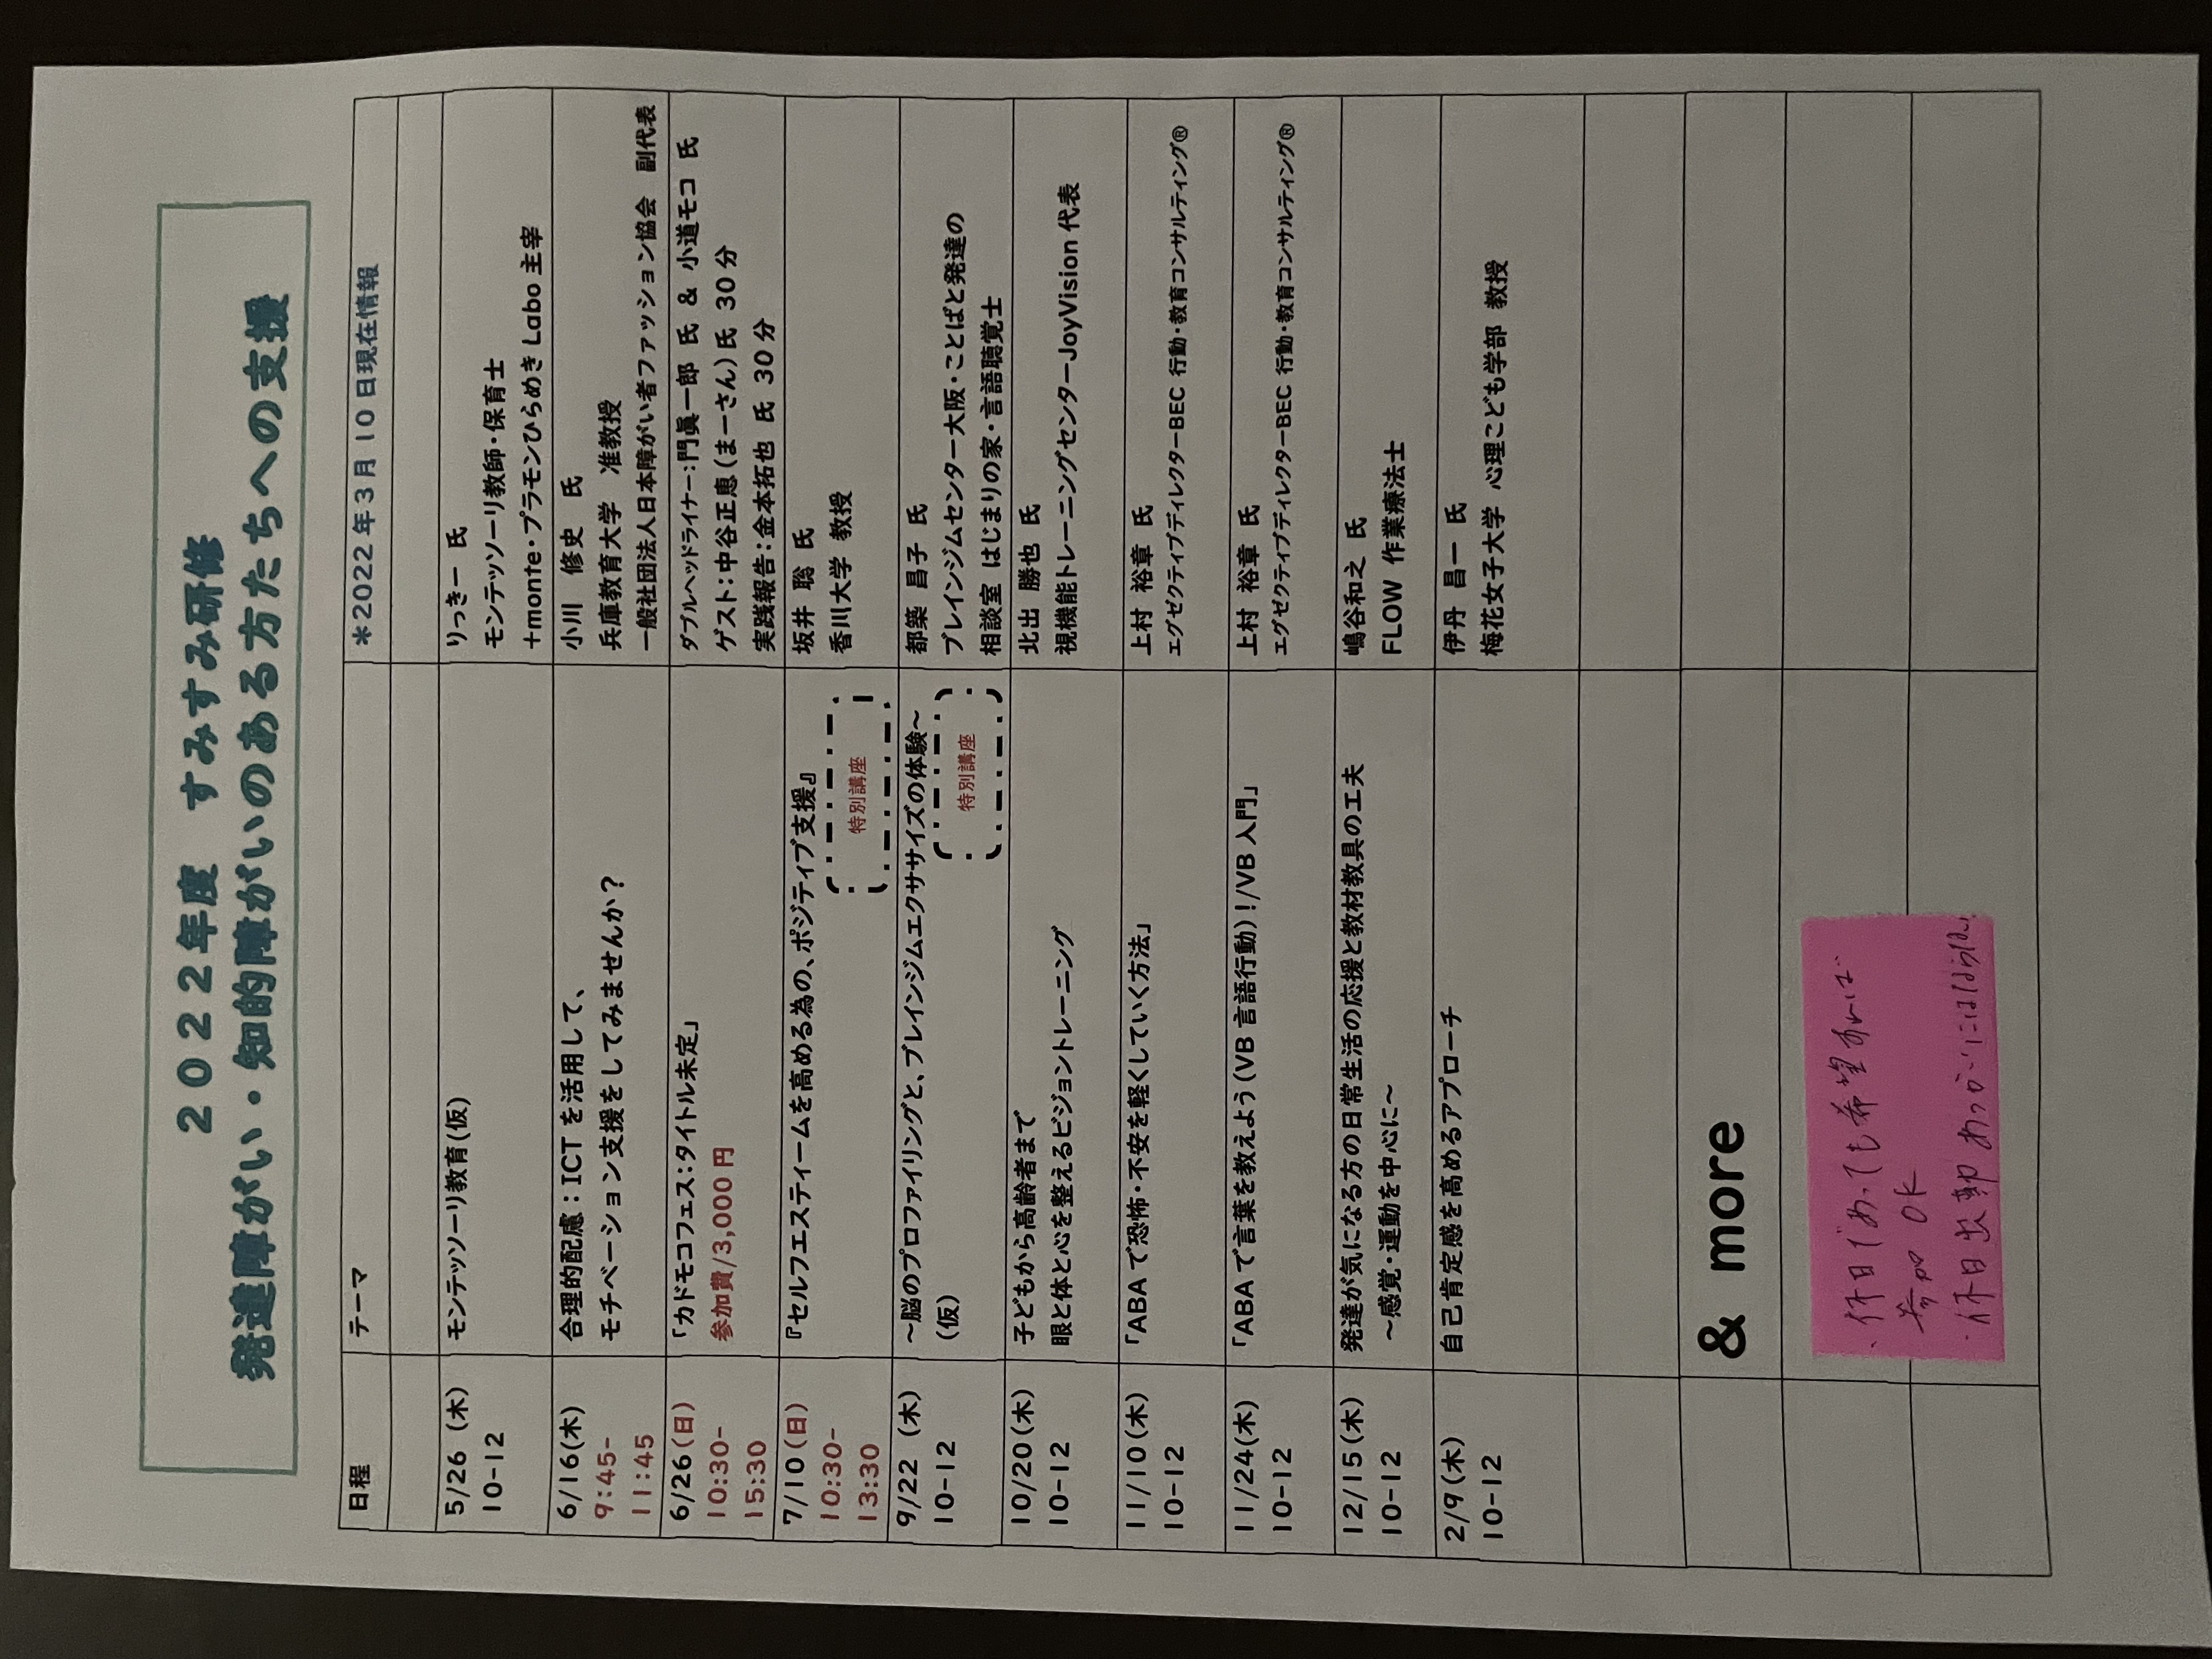 ２０２２年度　すみすみ研修
発達障がい・知的障がいのある方たちへの支援
日程　テーマ　＊2022年3月10日現在情報
5/26（木）
10-12
モンテッソーリ教育（仮）
りっきー 氏
モンテッソーリ教師・保育士
＋monte・プラモンひらめきLabo主宰
6/16(木)
9:45-
11:45
合理的配慮：ICTを活用して、
モチベーション支援をしてみませんか？
小川　修史　氏
兵庫教育大学　准教授
一般社団法人日本障がい者ファッション協会　副代表
6/26(日)
10:30-
15:30
「カドモコフェス：タイトル未定」
参加費/3,000円
ダブルヘッドライナー：門眞一郎 氏 & 小道モコ 氏
ゲスト：中谷正恵（まーさん）氏 30分
実践報告：金本拓也 氏 30分
7/10(日)
10:30-
13:30
『セルフエスティームを高める為の、ポジティブ支援』
特別講座
坂井 聡 氏
香川大学 教授
9/22（木）
10-12
～脳のプロファイリングと、ブレインジムエクササイズの体験～
（仮）
特別講座
都築 昌子 氏
ブレインジムセンター大阪・ことばと発達の
相談室 はじまりの家・言語聴覚士
10/20(木)
10-12
子どもから高齢者まで
眼と体と心を整えるビジョントレーニング
北出 勝也 氏
視機能トレーニングセンターJoyVision 代表
11/10(木)
10-12
「ABAで恐怖・不安を軽くしていく方法」
上村 裕章 氏
エグゼクティブディレクターBEC 行動・教育コンサルティング®
11/24(木)
10-12
「ABAで言葉を教えよう（VB 言語行動）！/VB入門」
上村 裕章 氏
エグゼクティブディレクターBEC 行動・教育コンサルティング®
12/15(木)
10-12
発達が気になる方の日常生活の応援と教材教具の工夫
～感覚・運動を中心に～
嶋谷和之 氏
FLOW 作業療法士
2/9(木)
10-12
自己肯定感を高めるアプローチ
伊丹 昌一 氏
梅花女子大学 心理こども学部 教授
& more
・休日であっても希望あれば
参加OK
・休日出勤あつかいにはならない